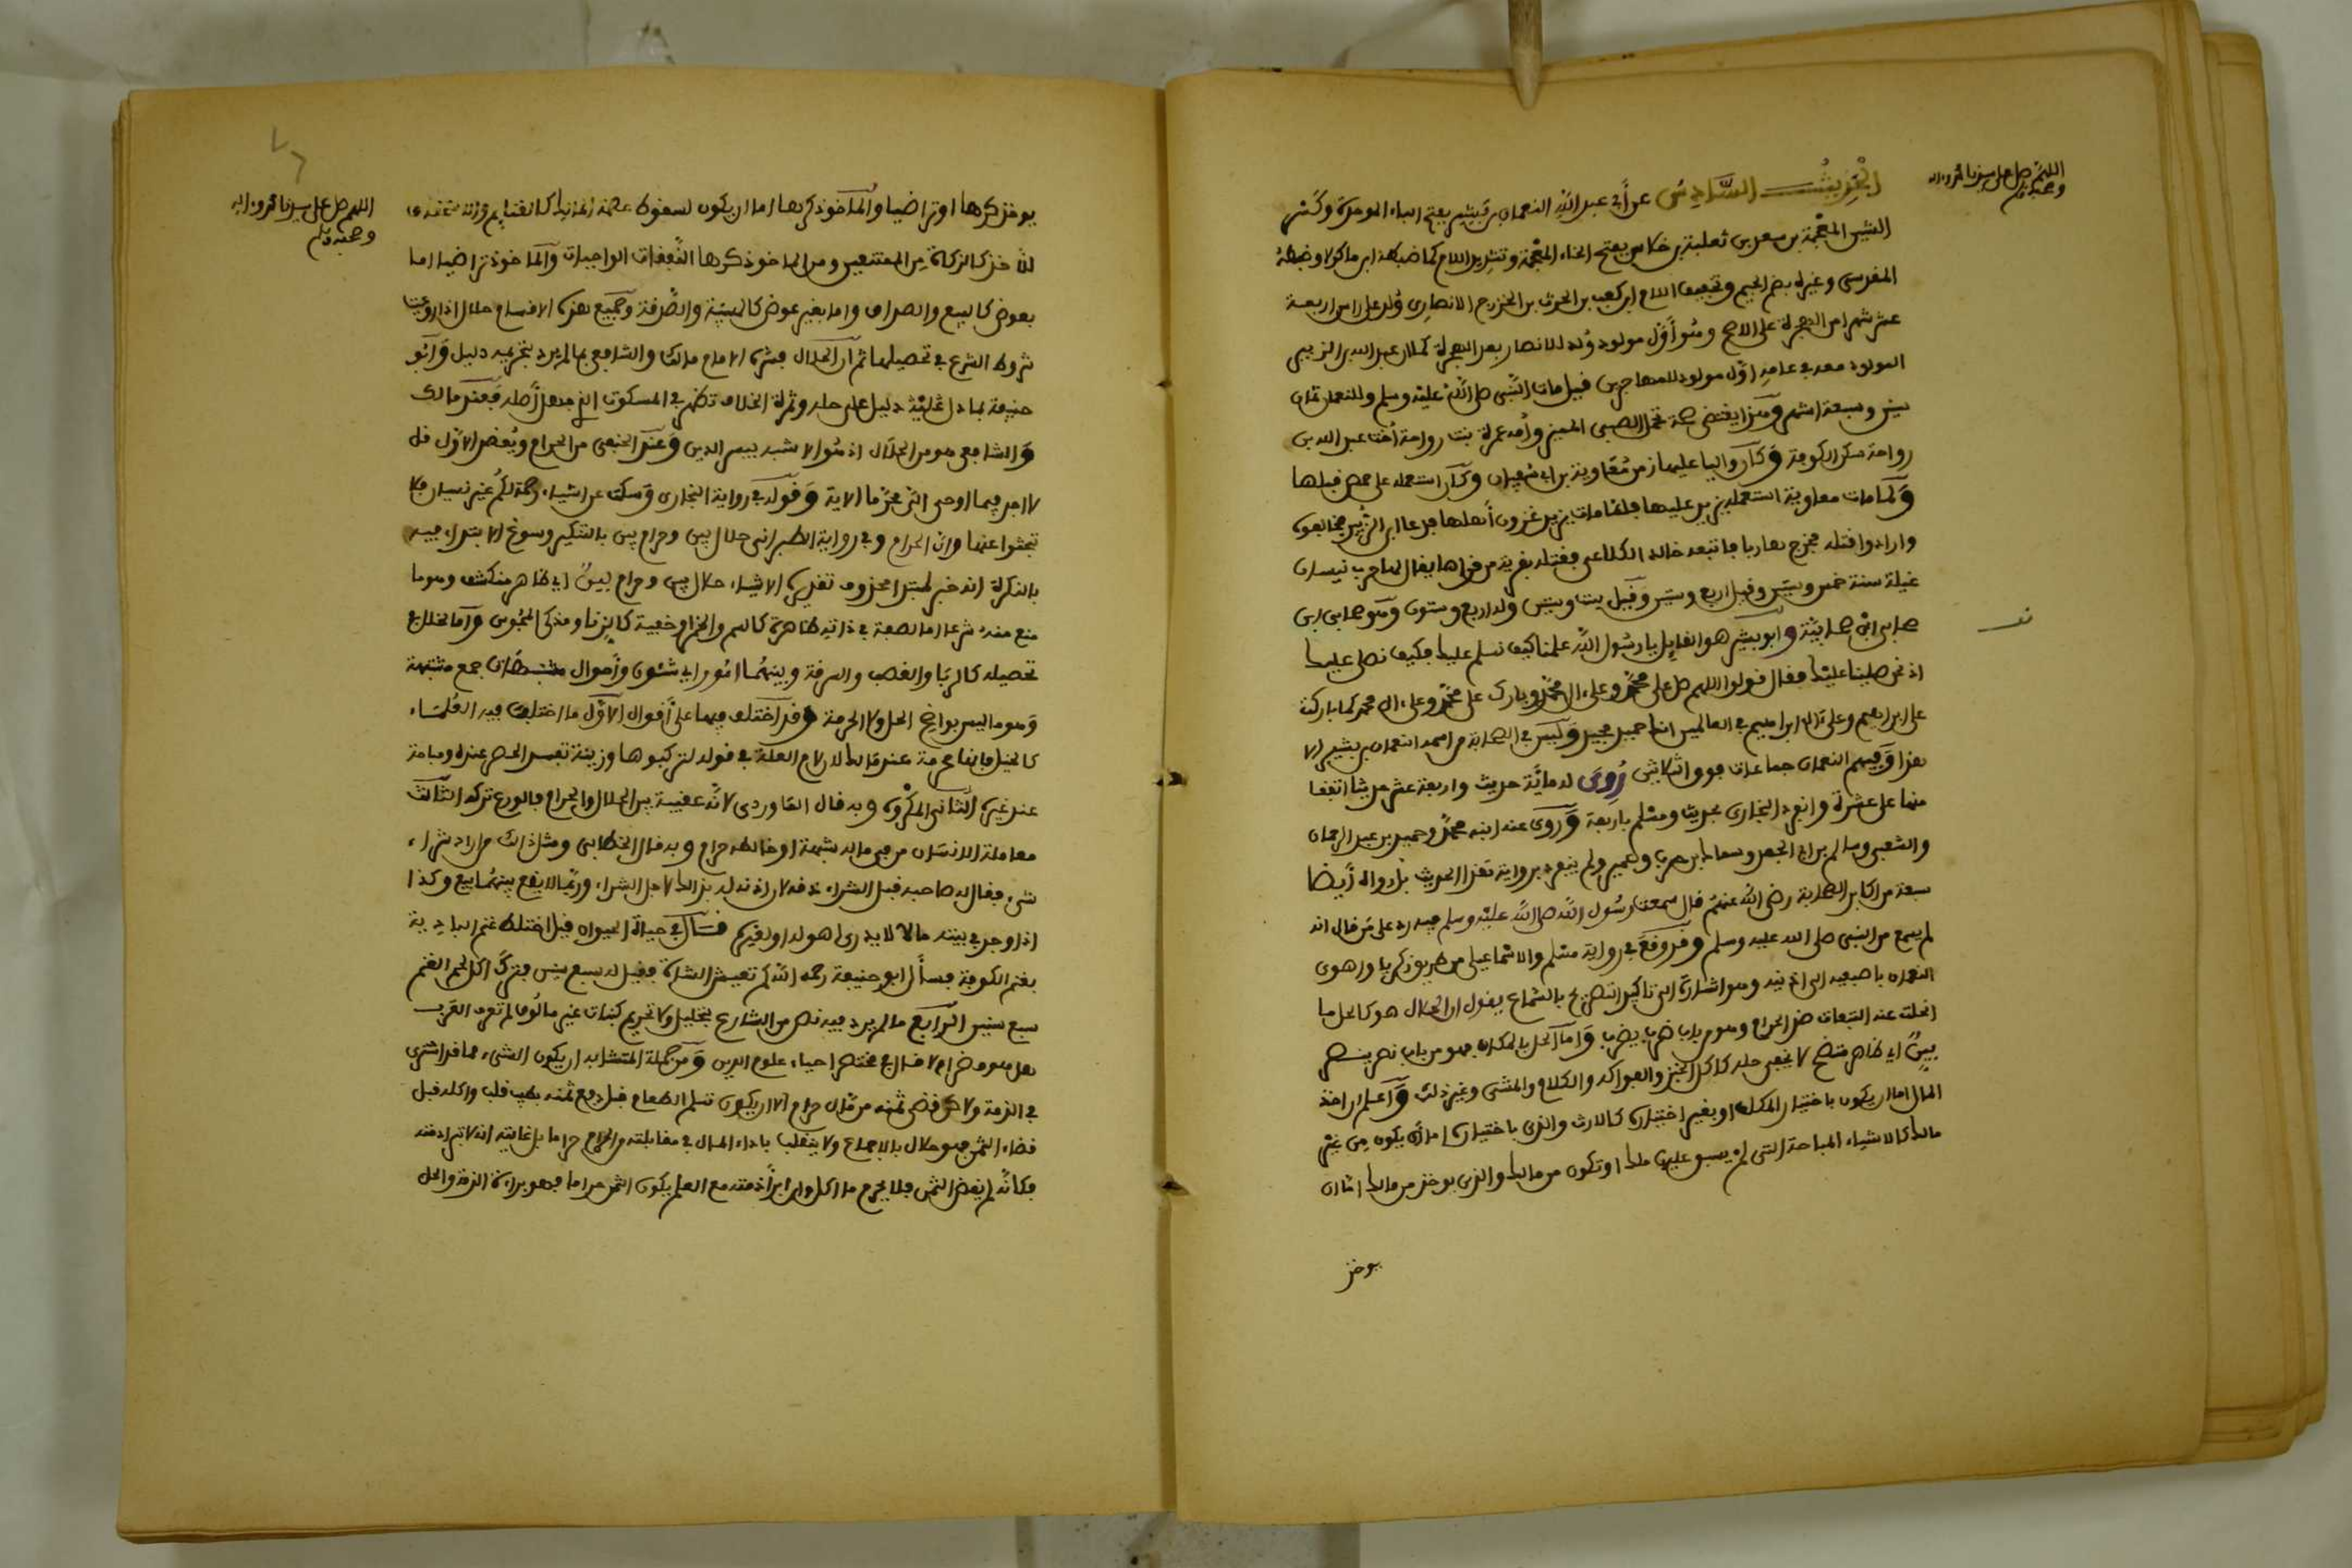 اللهم صل على سيدنا محمد وءاله
وصحبه وسلم
الحديث السادس عن أبي عبد الله النعمان بن بشير بفتح الباء الموحدة وكسر
الشين المعجمة بن سعد بن ثعلبة بن خلاس بفتح الخاء المعجمة وتشديد اللام كما ضبطه ابن ماكولا وضبطه
المقدسي وغيره بضم الجيم وتخفيف اللام ابن كعب بن الحرث بن الخزرج الانصاري ولد على راس اربعة
عشر شهرا من الهجرة على الاصح وهو أول مولود ولد للانصار بعد الهجرة كما ان عبد الله بن الزبير
المولود معه في عامه اول مولود للمهاجرين قيل مات النبي صلى الله عليه وسلم وللنعمان ثمان
سنين وسبعة اشهر وهذا يقتضي صحة تحمل الصبي المميز وأمه عمرة بنت رواحة أخت عبد الله بن
رواحة سكن الكوفة وكان واليا عليها زمن معاوية بن ابي سفيان وكان استعمله على حمص قبلها
ولما مات معاوية استعمله يزيد عليها فلما مات يزيد أهلها فدعا ابن الزبير فخالفوه
وارادوا قتله فخرج هاربا فاتبعه خالد الكلاعي فقتله بقرية من قراها يقال لها حرب نيسان
غيلة سنة خمس وستين وقيل اربع وستين وقيل ست وستين وله اربع وستون وهو صحابي ابن
صحابي ابن صحابية وابو بشير هو القايل يا رسول الله علمنا كيف نسلم عليك فكيف نصلي عليك
اذ نحن صلينا عليك فقال قولوا اللهم صل على محمد وعلى ءال محمد وبارك على محمد وعلى ءال محمد كما باركت
على ابراهيم وعلى ءال ابراهيم في العالمين انك حميد مجيد وليس في الصحابة من اسمه النعمان بن بشير الا
هذا وفيهم النعمان جماعات فوق الثلاثين روى له مائة حديث واربعة عشر حديثا اتفقا
منها على عشرة وانفرد البخاري بحديث ومسلم باربعة وروى عنه ابنه محمد وحميد بن عبد الرحمان
والشعبي وسالم بن ابي الجعد وسماك بن حرب وغيرهم ولم ينفرد برواية هذا الحديث بل رواه أيضا
سبعة من اكابر الصحابة رضي الله عنهم قال سمعت رسول الله صلى الله عليه وسلم فيه رد على من قال انه
لم يسمع من النبي صلى الله عليه وسلم وقد وقع في رواية مسلم والاسماعيلي من طريق زكرياء واهوى
النعمان باصبعيه الى اذنيه وهو اشارة الى تاكيد التصريح بالسماع يقول ان الحلال هو كالحل ما
انحلت عنه التبعات ضد الحرام وهو من باب ضرب يضرب واما الحل بالمكان فهو من باب نصر ينصر
بين اي ظاهر متضح لا يخفى حله كاكل الخبز والفواكه والكلام والمشي وغير ذلك واعلم ان اخذ
المال اما ان يكون باختيار المكلف او بغير اختياره كالارث والذي باختياره اما ان يكون من غير
مالك كالاشياء المباحة التي لم يسبق عليها ملك او تكون من مالك والذي يوخذ من مالك اما ان
يوخذ
اللهم صل على سيدنا محمد وءاله
وصحبه وسلم
يوخذ كرها او تراضيا والماخوذ كرها اما ان يكون لسقوط عصمة المالك كالغنايم
للاخذ كالزكاة من الممتنعين ومن الماخوذ كرها النفقات الواجبات والماخوذ تراضيا اما
بعوض كالبيع والصداق واما بغير عوض كالهبة والصدقة وجميع هذه الاقسام حلال اذا روعيت
شروط الشرع في تحصيلها ثم ان الحلال فسره الامام مالك والشافعي بما لم يرد بتحريمه دليل وابو
حنيفة بما دل عليه دليل على حله وثمرة الخلاف تظهر في المسكوت الذي جهل أصله فعند مالك
والشافعي هو من الحلال اذ هو الاشبه بيسر الدين وعند الحنفي من الحرام ويعضد الاول قل
لا اجد فيما اوحي الي محرما الاية وقوله في رواية البخاري وسكت عن اشياء رحمة لكم غير نسيان فلا
تبحثوا عنها وان الحرام وفي رواية الطبراني حلال بين وحرام بين بالتنكير وسوغ الابتداء فيه
بالنكرة انه خبر لمبتدا محذوف تقديره الاشياء حلال بين وحرام بين اي ظاهر منكشف وهو ما
منع منه شرعا اما لصفة في ذاته ظاهرة كالسم والخمر او خفية كالزنا ومذكى المجوس واما لخلل في
تحصيله كالربا والغصب والسرقة وبينهما امور اي شئون وأحوال مشتبهات جمع مشتبهة
وهو ما ليس بواضح الحل ولا الحرمة وقد اختلف فيها على أقوال الاول ما اختلفت فيه العلماء
كالخيل فانها محرمة عند مالك للام العلة في قوله لتركبوها وزينة تفيد الحصر عنده ومباحة
عند غيره الثاني المكروه وبه قال الماوردي لانه عقبة بين الحلال والحرام فالورع تركه الثالث
معاملة الانسان من في ماله شبهة او خالطه حرام وبه قال الخطابي ومثل ذلك من اراد شراء
شيء فقال له صاحبه قبل الشراء ذقه لان اذنه له بذلك لاجل الشراء وربما لا يقع بينهما بيع وكذا
اذا وجد في بيته مالا لا يدري اهو له او لغيره قال في حياة الحيوان قيل اختلط غنم البادية
بغنم الكوفة فسأل ابو حنيفة رحمه الله كم تعيش الشاة فقيل له سبع سنين فترك اكل لحم الغنم
سبع سنين الرابع ما لم يرد فيه نص من الشارع بتحليل ولا تحريم كنبات غير مالوف لم تعرف العرب
هل هو مضر ام لا قال في مختصر احياء علوم الدين ومن جملة المتشابه ان يكون الشيء مما قد اشترى
في الذمة ولاكن قضى ثمنه من مال حرام الا ان يكون تسلم الطعام قبل دفع ثمنه بطيب قلب واكله قبل
قضاء الثمن فهو حلال بالاجماع ولا ينقلب باداء المال في مقابلته من الحرام حراما بل غايته انه لا تبرا ذمته
فكانه لم يقض الثمن فلا يحرم ما اكل وان ابرأ ذمته مع العلم بكون الثمن حراما فهو براءة الذمة والحل